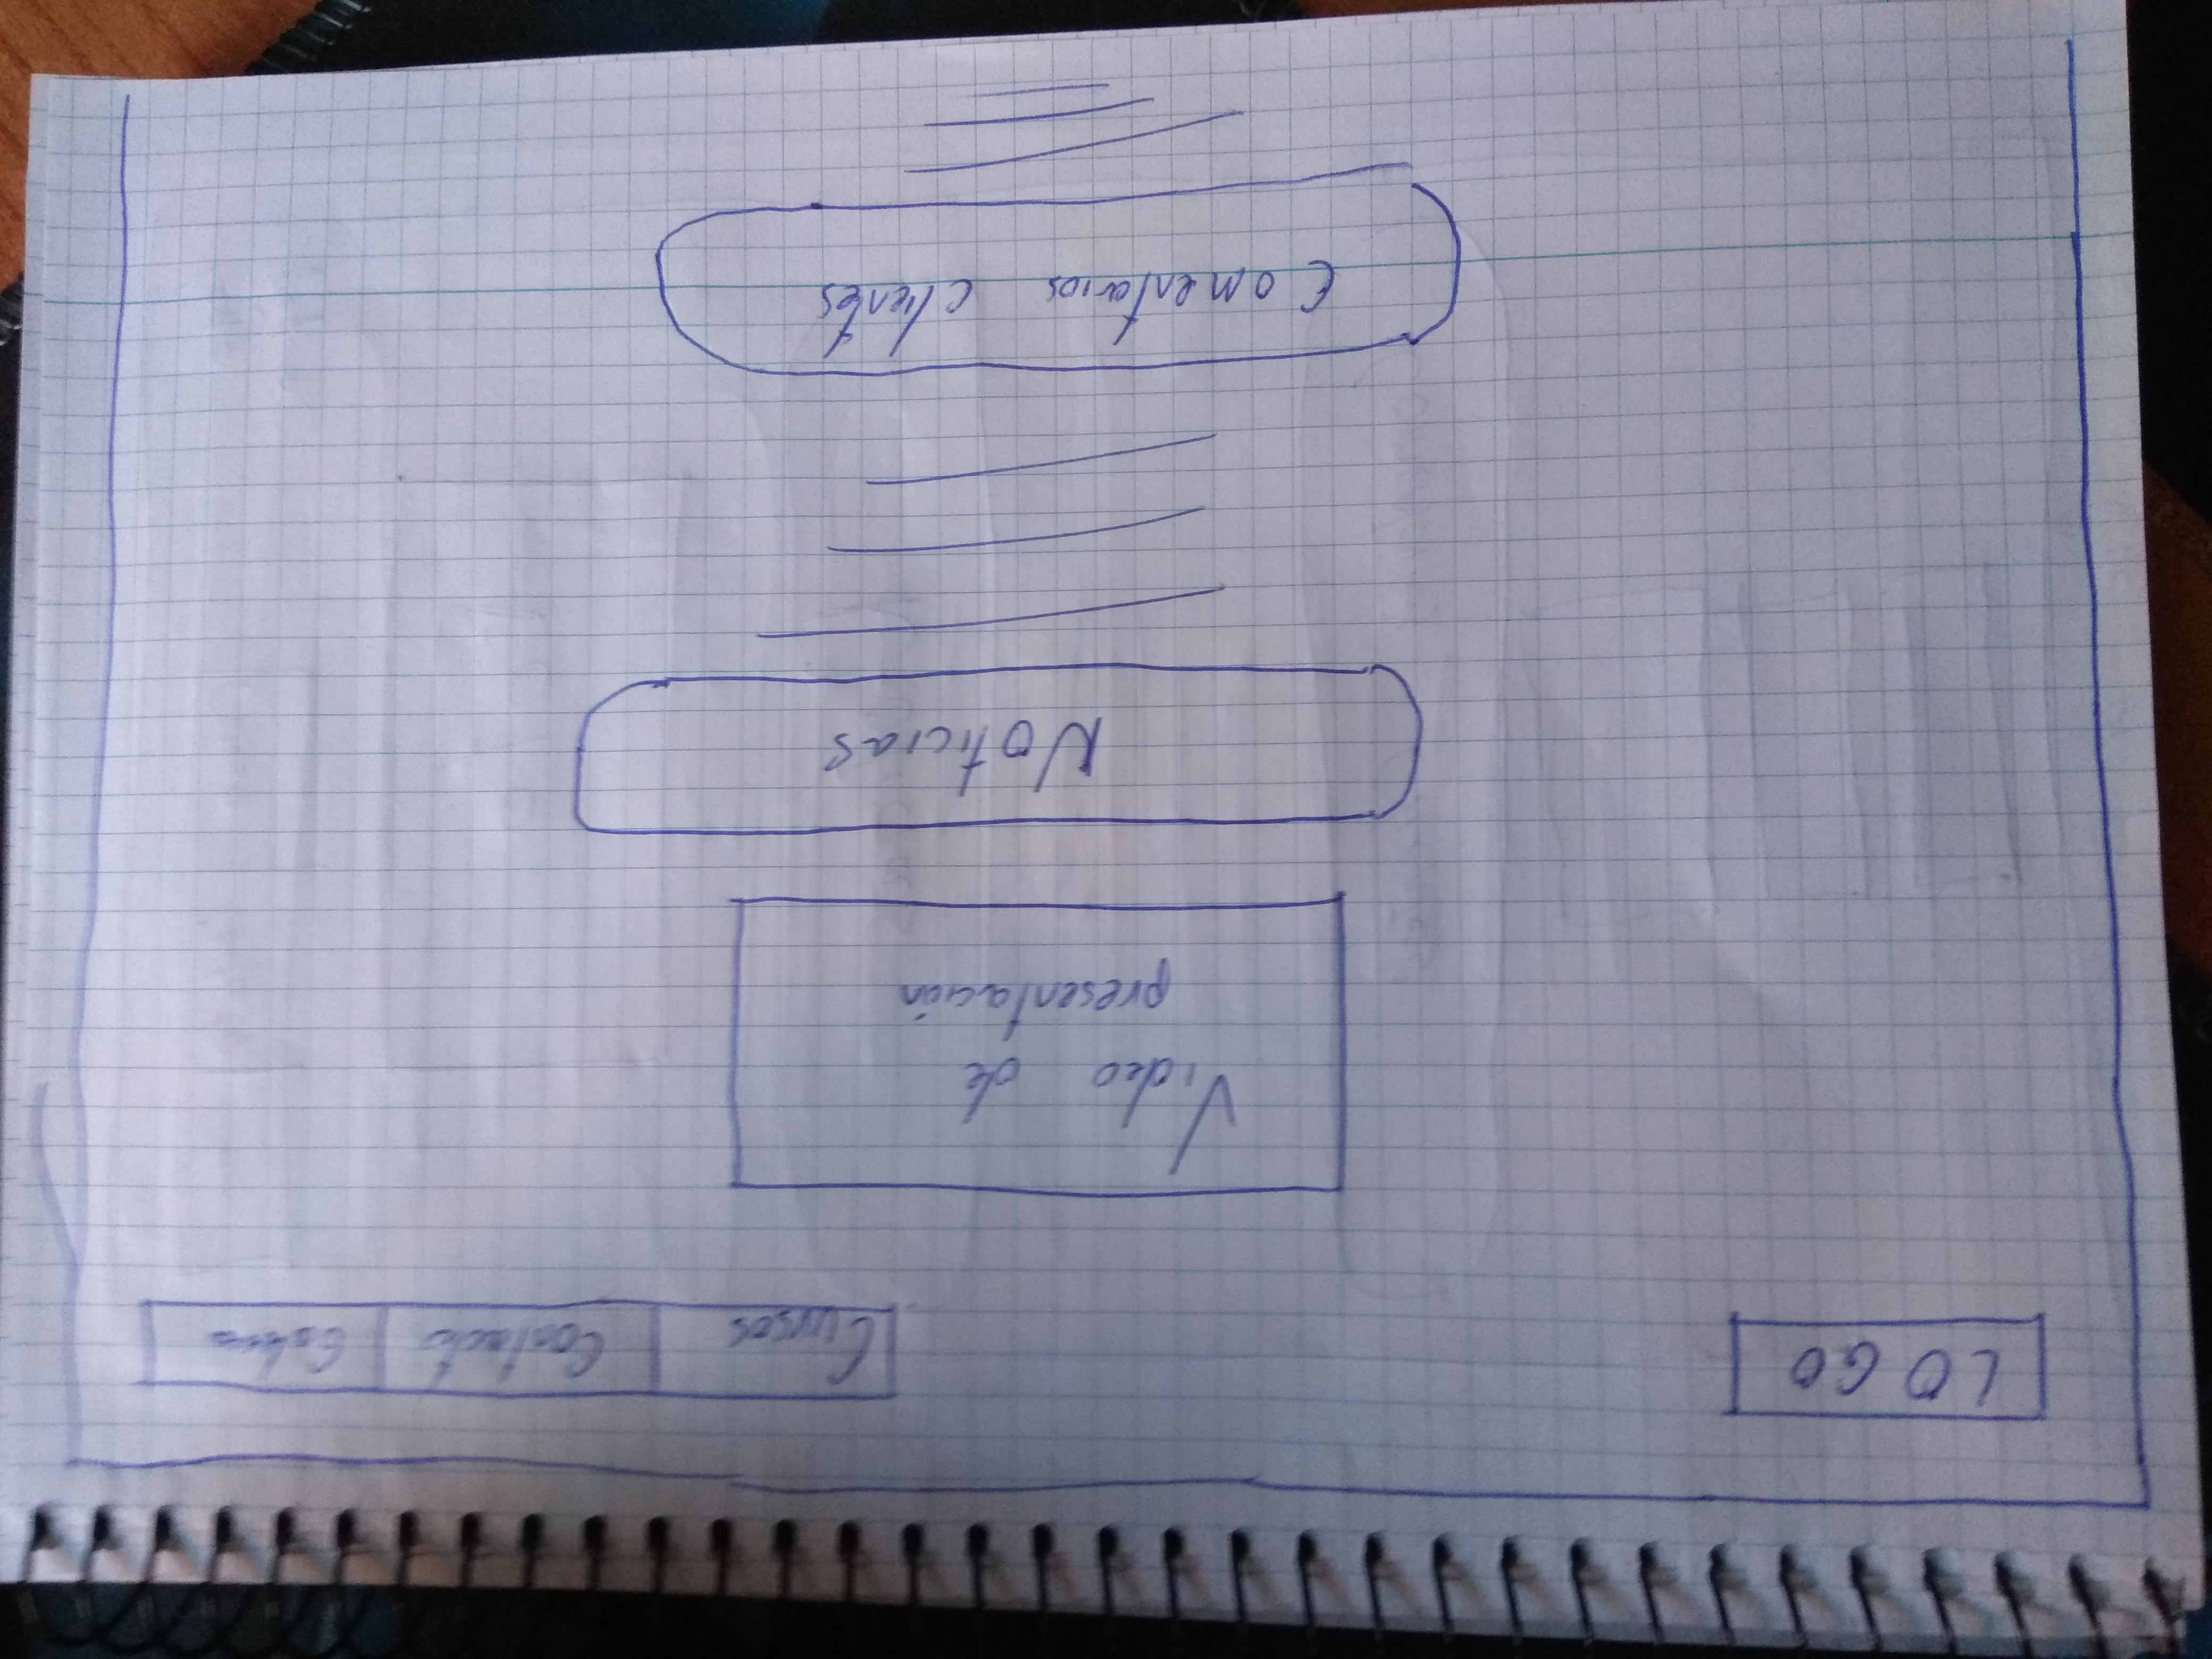 LOGO
Cursos
Contacto
Video de
presentación
Noticias
Comentarios clientes